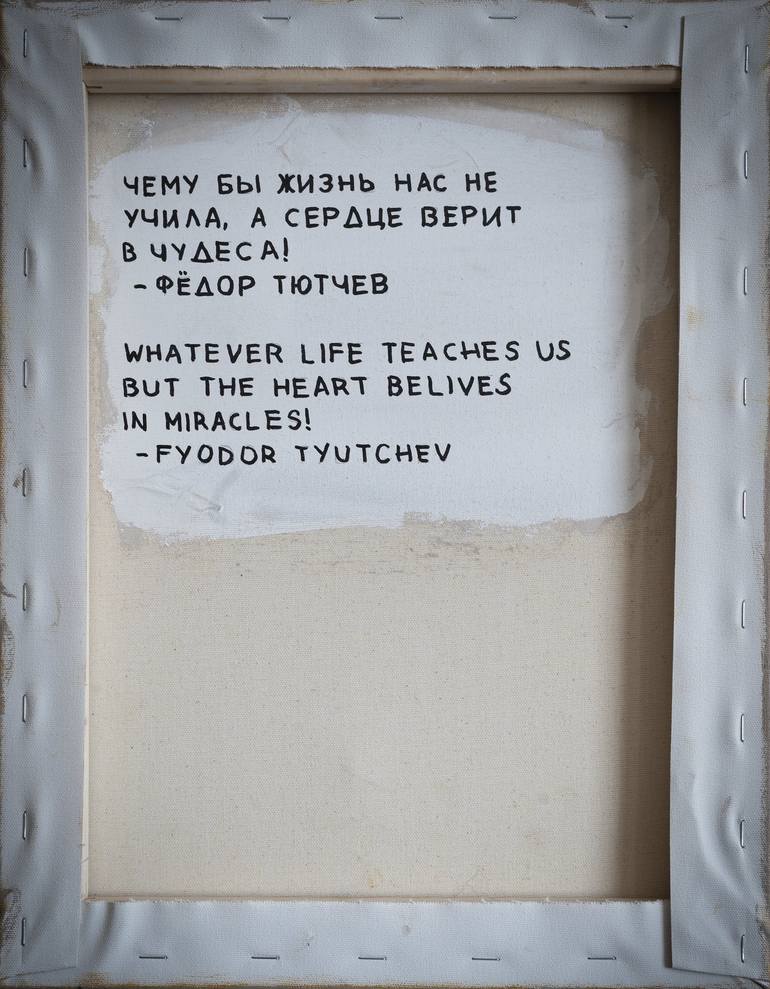 ЧЕМУ БЫ ЖИЗНЬ НАС НЕ
УЧИЛА, А СЕРДЦЕ ВЕРИТ
В ЧУДЕСА!
- ФЁДОР ТЮТЧЕВ
WHATEVER LIFE TEACHES US
BUT THE HEART BELIVES
IN MIRACLES!
- FYODOR TYUTCHEV